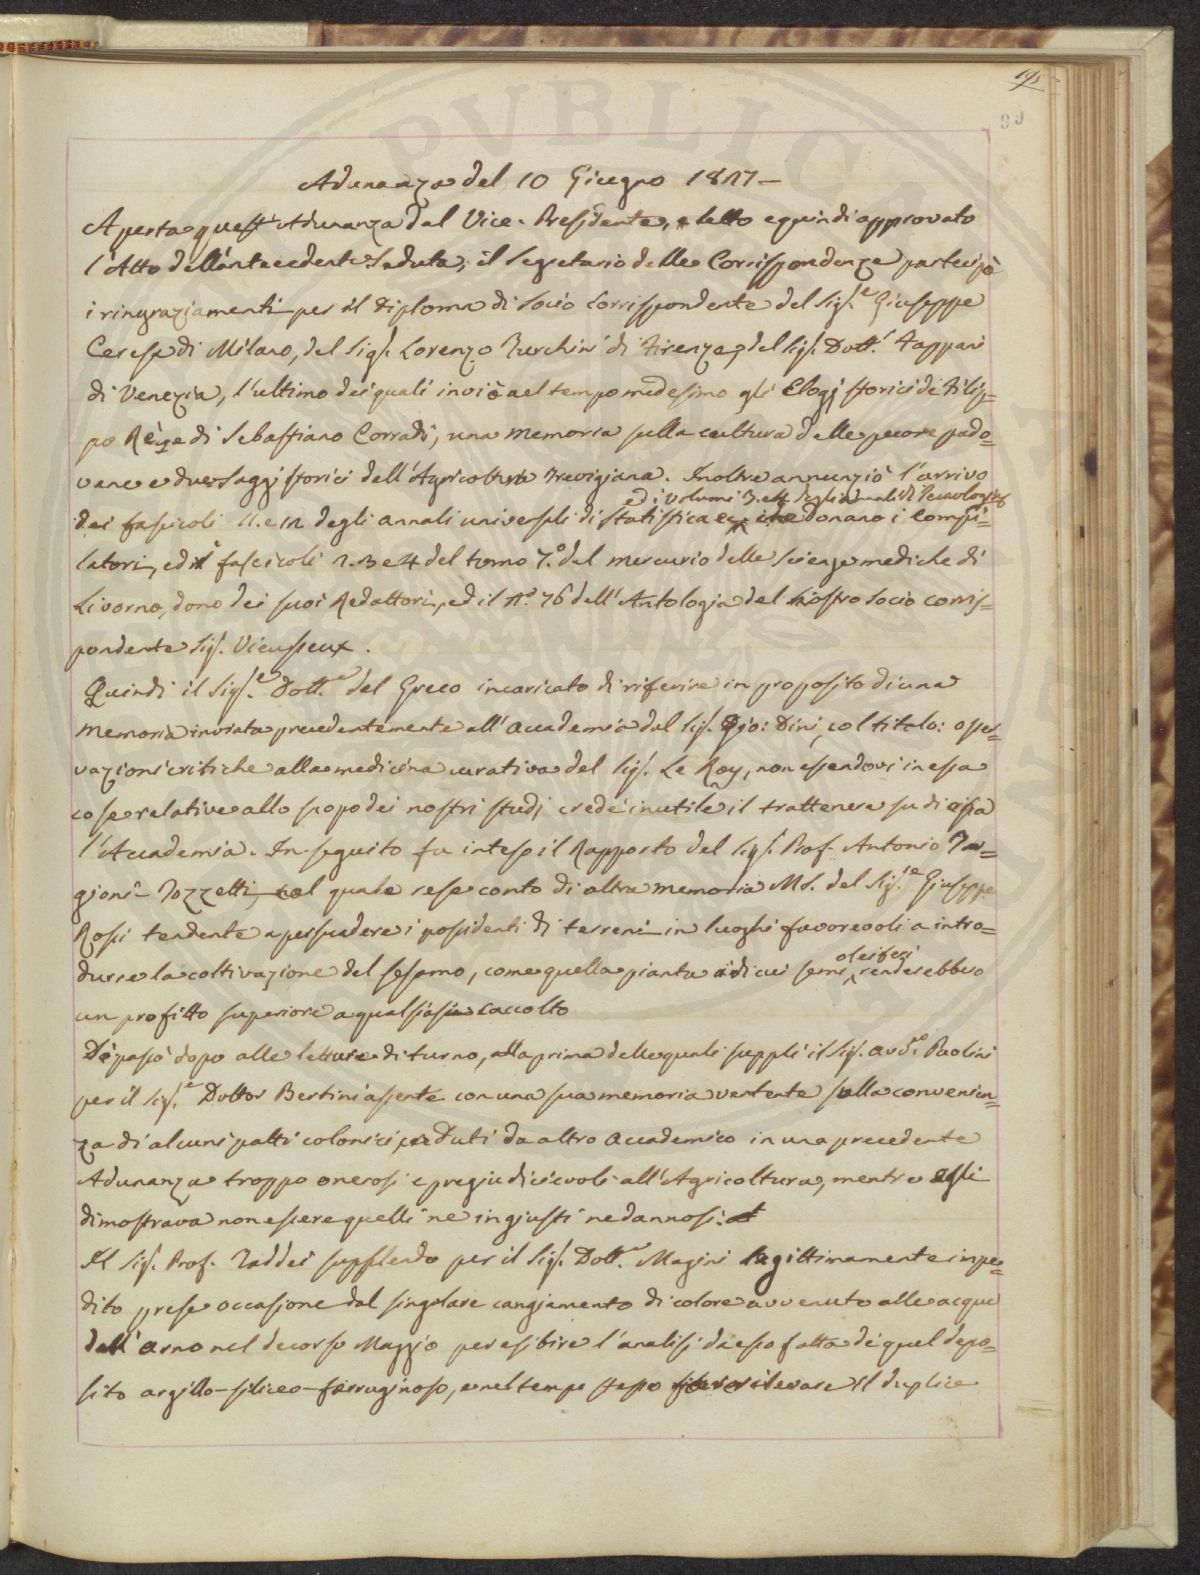 195
99
PVBLIC
Adunanza del 10 Giugno 1827 —
Aperta quest'Adunanza dal Vice-Presidente, e letto e quindi approvato
l'Atto dell'antecedente Seduta, il Segretario delle Corrispondenze partecipò
i ringraziamenti per il diploma di Socio Corrispondente del Sig.e Giuseppe
Ceresa di Milano, del Sig. Lorenzo Turchini di Firenze, e del Sig. Dott. Fappani
di Venezia, l'ultimo dei quali inviò nel tempo medesimo gli Elogj storici di Filip=
po Rè, e di Sebastiano Corradi, una memoria sulla cultura delle pecore pado=
vane e due Saggj storici dell'Agricoltura Trevigiana. Inoltre annunziò l'arrivo
ed i volumi 3. e 4. degli Annali di Tecnologia
dei fascicoli 11. e 12 degli annali universali di Statistica che donano i Compi=
latori, ed i fascicoli 2. 3 e 4 del tomo 7.o del mercurio delle scienze mediche di
Livorno, dono dei suoi Redattori, ed il N.o 76 dell'Antologia del nostro Socio corris=
pondente Sig. Vieusseux.
Quindi il Sig.e Dott. del Greco incaricato di riferire in proposito di una
memoria inviata precedentemente all'Accademia dal Sig. Gio: Dini, col titolo: osser=
vazioni critiche alla medicina curativa del Sig. Le Roy, non essendovi in essa
cose relative allo scopo dei nostri studj credè inutile il trattenere su di essa
l'Accademia. In seguito fu inteso il Rapporto del Sig. Prof. Antonio Tar=
gioni-Tozzetti, col quale rese conto di altra memoria MS. del Sig.re Giuseppe
Rossi tendente a persuadere i possidenti di terreni in luoghi favorevoli a intro=
oleiferi
durre la coltivazione del sesamo, come quella pianta i di cui semi renderebbero
un profitto superiore a qualsisia raccolto
Si passò dopo alle letture di turno, alla prima delle quali supplì il Sig. avv.o Paolini
per il Sig.e Dottor Bertini assente con una sua memoria vertente sulla convenien=
za di alcuni patti colonici creduti da altro Accademico in una precedente
Adunanza troppo onerosi e pregiudicievoli all'Agricoltura, mentre egli
dimostrava non essere quelli nè ingiusti nè dannosi.
Il Sig. Prof. Taddei supplendo per il Sig. Dott. Magini legittimamente impe=
dito prese occasione dal singolare cangiamento di colore avvenuto alle acque
dell'Arno nel decorso Maggio per esibire l'analisi da esso fatta di quel depo=
sito argillo-siliceo-ferruginoso, e nel tempo stesso rilevare il duplice